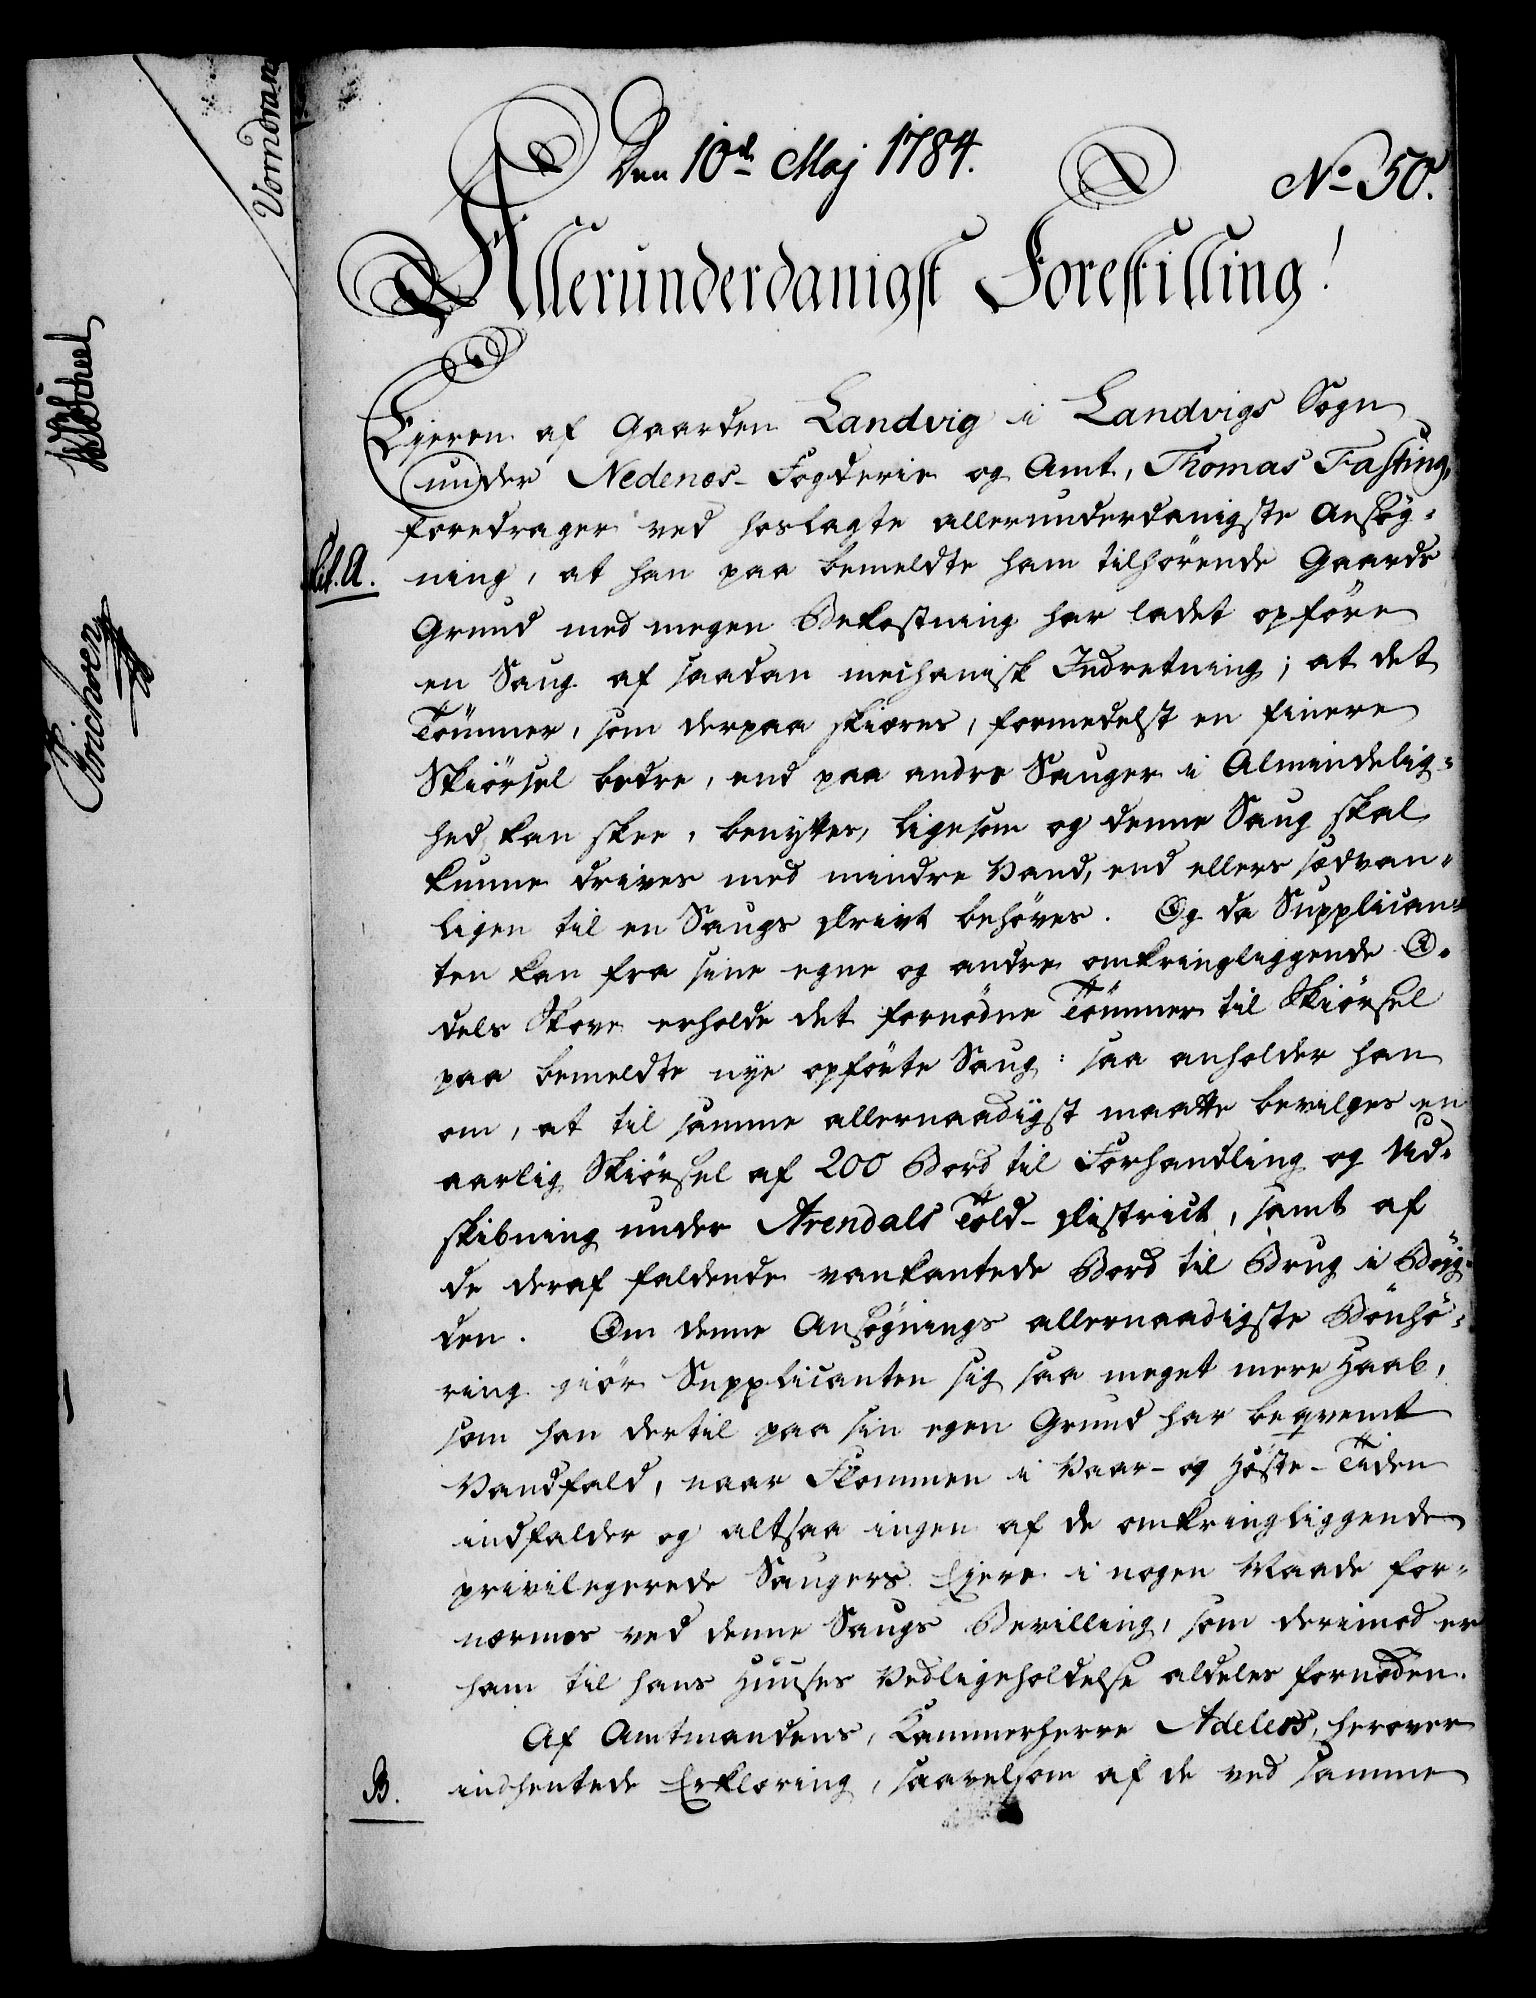 Den 10de Maj 1784.
No 50.
Allerunderdanigst Forestilling!
Ejeren af Gaarden Landvig i Landvigs Sogn
under Nedenes-Fogderie og Amt, Thomas Fasting,
foredrager ved hoslagte allerunderdanigste Ansøg-
Lit. A.
ning, at han paa bemeldte ham tilhørende Gaards
Grund med megen Bekostning har ladet opføre
en Saug af saadan mechanisk Indretning; at det
Tømmer, som derpaa skiæres, formedelst en finere
Skiørsel bedre, end paa andre Sauger i Almindelig-
hed kan skee, benyttes, ligesom og denne Saug skal
kunne drives med mindre Vand, end ellers sædvan-
ligen til en Saugs Drivt behøves. Og da Supplican-
ten kan fra sine egne og andre omkringliggende O-
dels Skove erholde det fornødne Tømmer til Skiørsel
paa bemeldte nye opførte Saug: saa anholder han
om, at til samme allernaadigst maatte bevilges en
aarlig Skiørsel af 200 Bord til Forhandling og Ud-
skibning under Arendals Told-District, samt af
de deraf faldende vankantede Bord til Brug i Byg-
den. Om denne Ansøgnings allernaadigste Bønhø-
ring giør Supplicanten sig saa meget mere Haab,
som han dertil paa sin egen Grund har beqvemt
Vandfald, naar Flommen i Vaar- og Høste-Tiden
indfalder og altsaa ingen af de omkringliggende
privilegerede Saugers Ejere i nogen Maade for-
nærmes ved denne Saugs Bevilling, som derimod er
ham til hans Huuses Vedligeholdelse aldeles fornøden.
Af Amtmandens, Kammerherre Adelers, herover
B.
indhentede Erklæring, saavelsom af de ved samme
Vormdran
Scheel
Erichsen